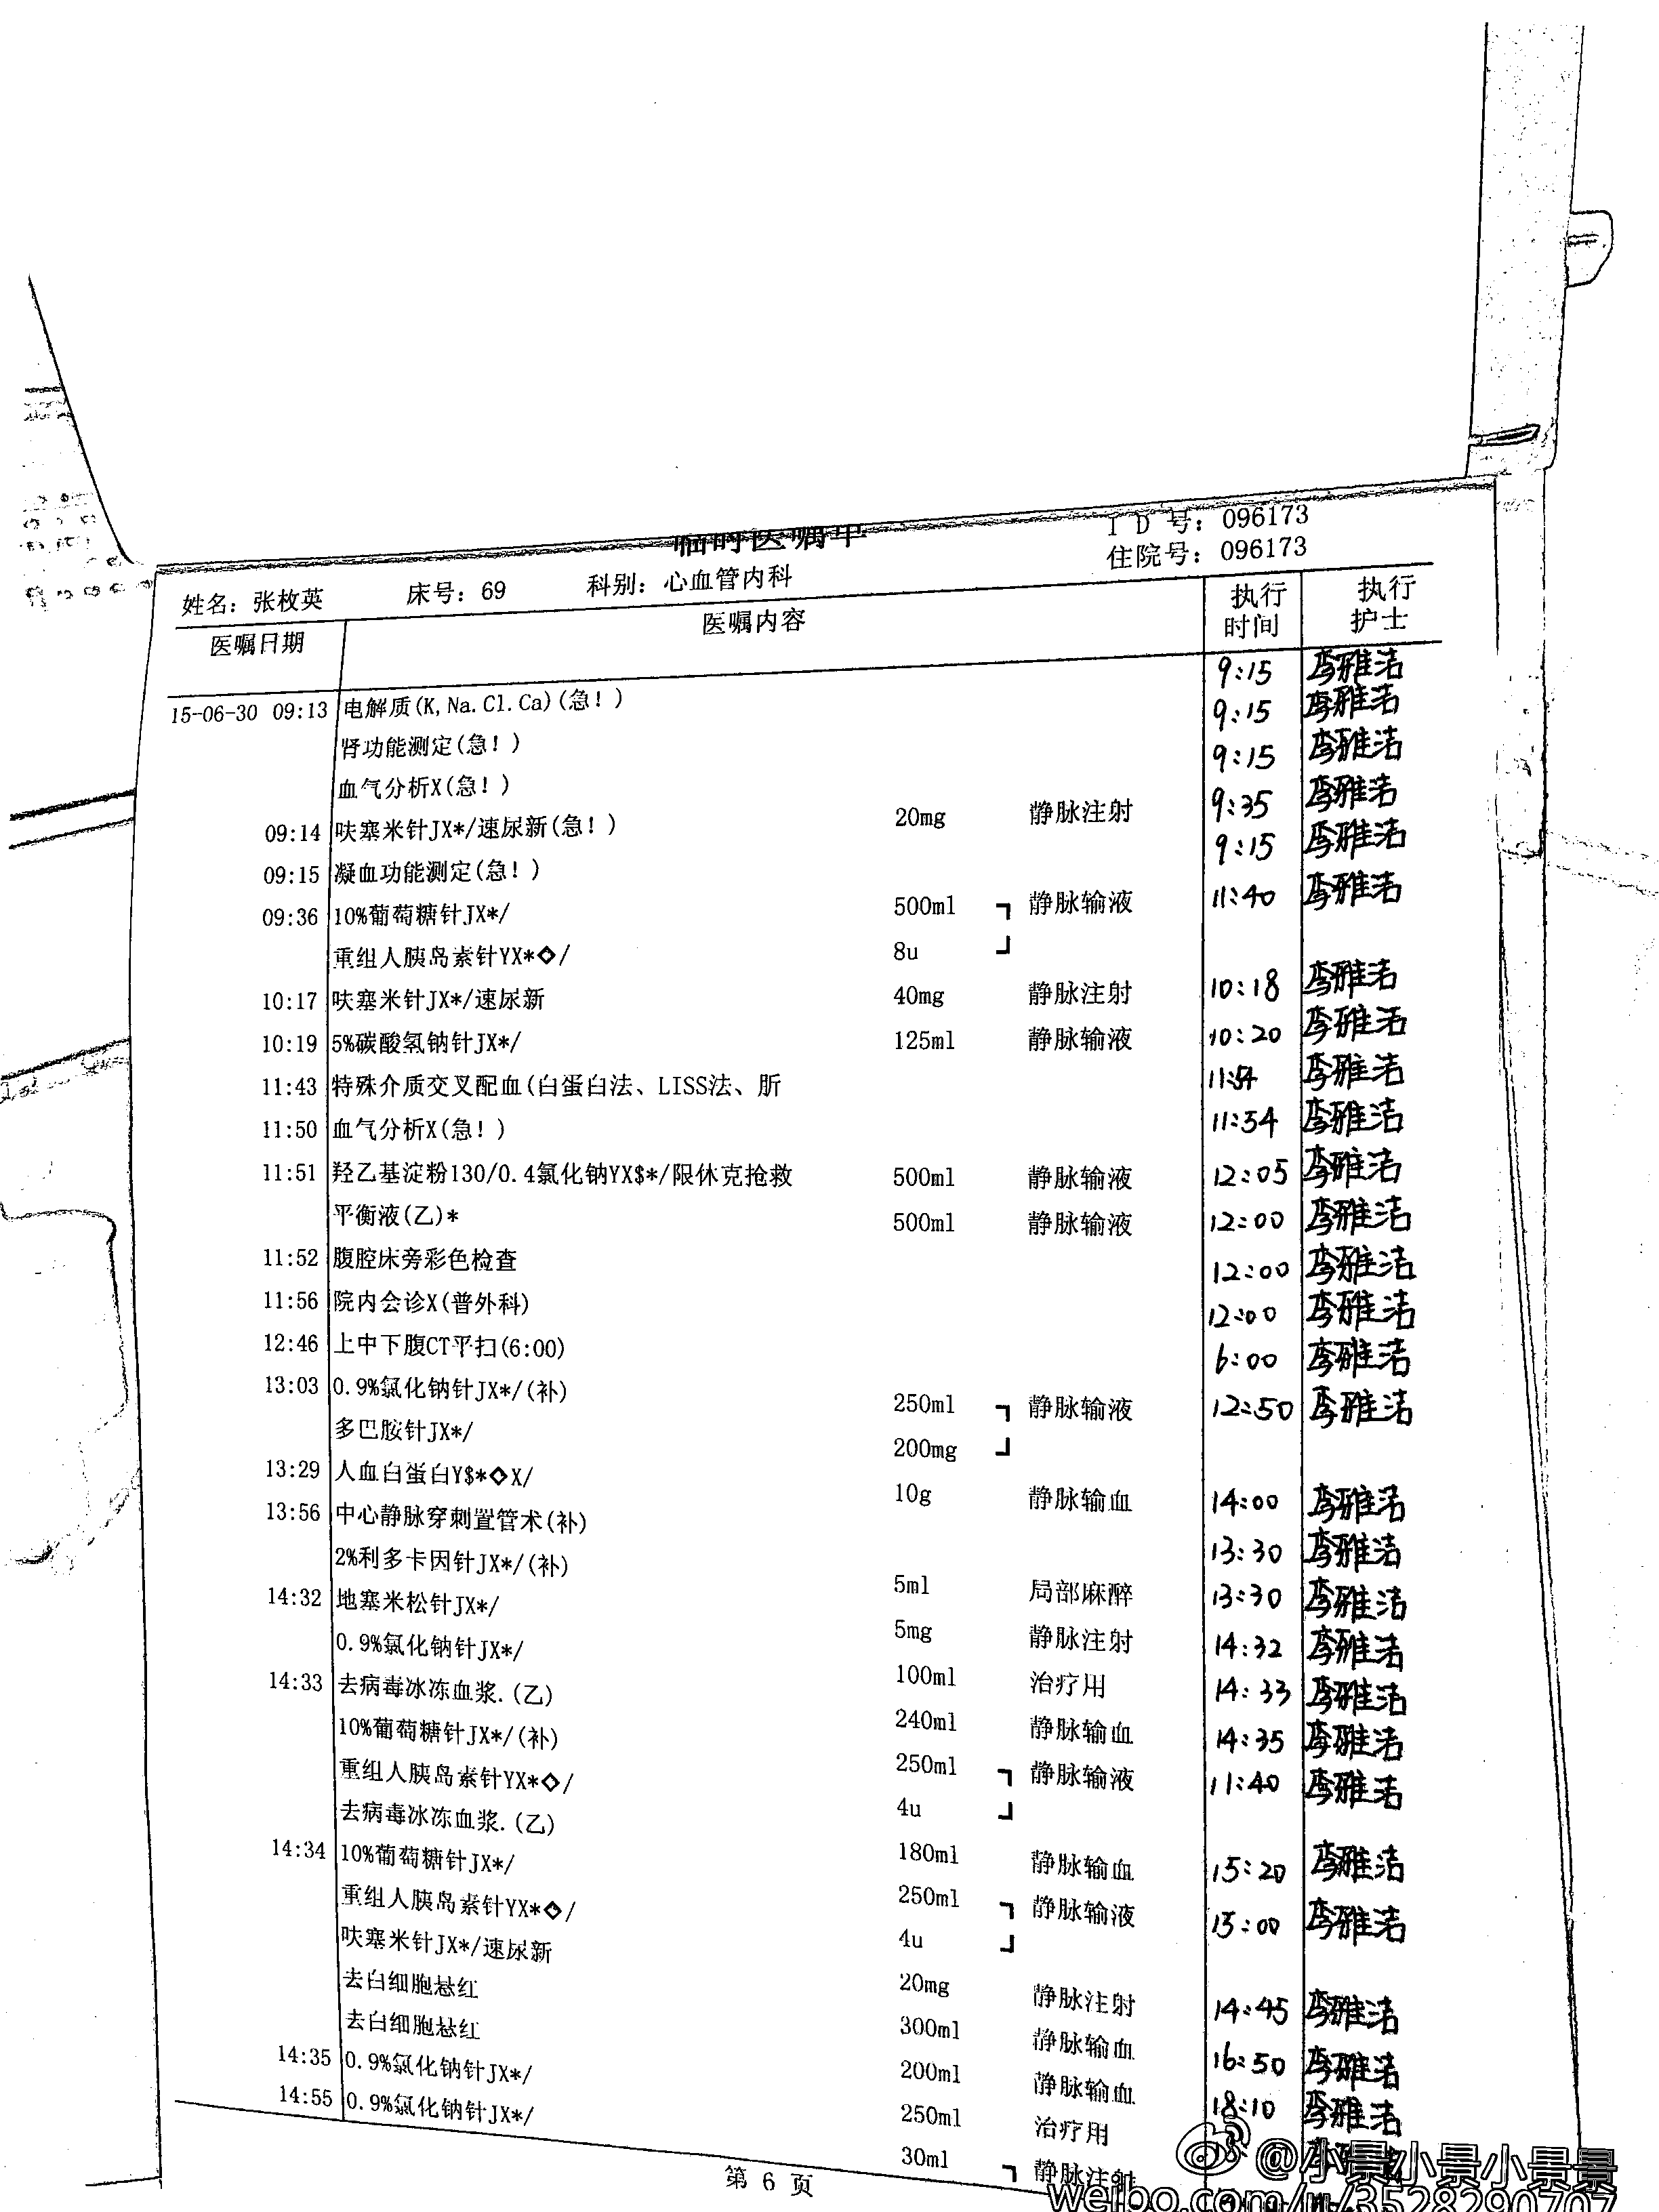 临时医嘱单
ID号: 096173
住院号: 096173
姓名: 张枚英 床号: 69 科别: 心血管内科
医嘱日期 医嘱内容 执行时间 执行护士
15-06-30 09:13 电解质(K,Na.Cl.Ca)(急!) 9:15 李雅洁
肾功能测定(急!) 9:15 李雅洁
血气分析X(急!) 9:15 李雅洁
09:14 呋塞米针JX*/速尿新(急!) 20mg 静脉注射 9:35 李雅洁
09:15 凝血功能测定(急!) 9:15 李雅洁
09:36 10%葡萄糖针JX*/ 500ml ┓ 静脉输液 11:40 李雅洁
重组人胰岛素针YX*◇/ 8u ┛
10:17 呋塞米针JX*/速尿新 40mg 静脉注射 10:18 李雅洁
10:19 5%碳酸氢钠针JX*/ 125ml 静脉输液 10:20 李雅洁
11:43 特殊介质交叉配血(白蛋白法、LISS法、肵 11:54 李雅洁
11:50 血气分析X(急!) 11:54 李雅洁
11:51 羟乙基淀粉130/0.4氯化钠YX$*/限休克抢救 500ml 静脉输液 12:05 李雅洁
平衡液(乙)* 500ml 静脉输液 12:00 李雅洁
11:52 腹腔床旁彩色检查 12:00 李雅洁
11:56 院内会诊X(普外科) 12:00 李雅洁
12:46 上中下腹CT平扫(6:00) 6:00 李雅洁
13:03 0.9%氯化钠针JX*/(补) 250ml ┓ 静脉输液 12:50 李雅洁
多巴胺针JX*/ 200mg ┛
13:29 人血白蛋白Y$*◇X/ 10g 静脉输血 14:00 李雅洁
13:56 中心静脉穿刺置管术(补) 13:30 李雅洁
2%利多卡因针JX*/(补) 5ml 局部麻醉 13:30 李雅洁
14:32 地塞米松针JX*/ 5mg 静脉注射 14:32 李雅洁
0.9%氯化钠针JX*/ 100ml 治疗用 14:33 李雅洁
14:33 去病毒冰冻血浆.(乙) 240ml 静脉输血 14:35 李雅洁
10%葡萄糖针JX*/(补) 250ml ┓ 静脉输液 11:40 李雅洁
重组人胰岛素针YX*◇/ 4u ┛
去病毒冰冻血浆.(乙) 180ml 静脉输血 15:20 李雅洁
14:34 10%葡萄糖针JX*/ 250ml ┓ 静脉输液 15:00 李雅洁
重组人胰岛素针YX*◇/ 4u ┛
呋塞米针JX*/速尿新 20mg 静脉注射 14:45 李雅洁
去白细胞悬红 300ml 静脉输血 16:50 李雅洁
去白细胞悬红 200ml 静脉输血 18:10 李雅洁
14:35 0.9%氯化钠针JX*/ 250ml 治疗用
14:55 0.9%氯化钠针JX*/ 30ml ┓ 静脉注射
第 6 页
@小景小景小景景
weibo.com/u/3528290707